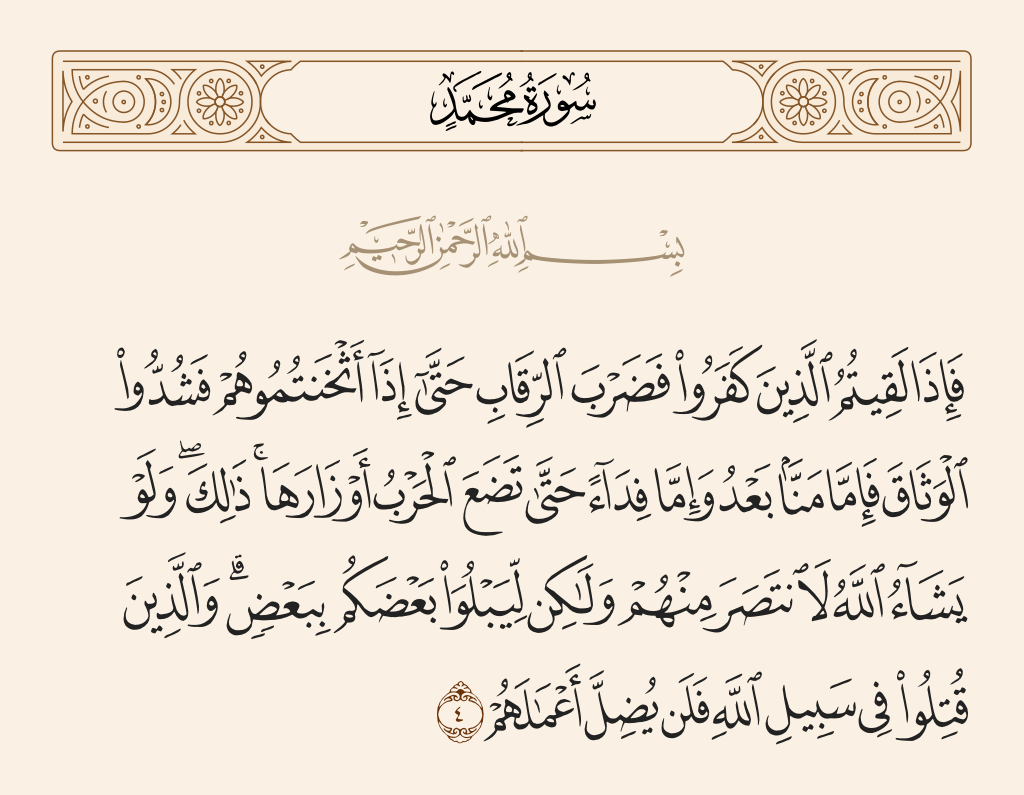 سُورَةُ مُحَمَّدٍ
بِسْمِ ٱللَّهِ ٱلرَّحْمَٰنِ ٱلرَّحِيمِ
فَإِذَا لَقِيتُمُ ٱلَّذِينَ كَفَرُوا۟ فَضَرْبَ ٱلرِّقَابِ حَتَّىٰٓ إِذَآ أَثْخَنتُمُوهُمْ فَشُدُّوا۟
ٱلْوَثَاقَ فَإِمَّا مَنًّۢا بَعْدُ وَإِمَّا فِدَآءً حَتَّىٰ تَضَعَ ٱلْحَرْبُ أَوْزَارَهَا ۚ ذَٰلِكَ ۖ وَلَوْ
يَشَآءُ ٱللَّهُ لَٱنتَصَرَ مِنْهُمْ وَلَٰكِن لِّيَبْلُوَا۟ بَعْضَكُم بِبَعْضٍ ۗ وَٱلَّذِينَ
قُتِلُوا۟ فِى سَبِيلِ ٱللَّهِ فَلَن يُضِلَّ أَعْمَٰلَهُمْ ٤